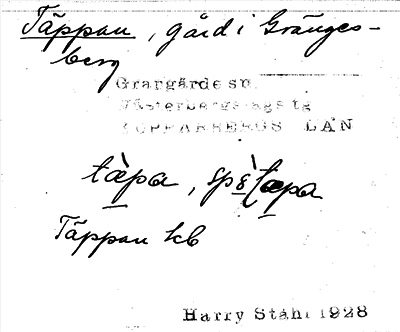 Täppan, gård i Gränges-
berg
Grangärde sn.
Västerbergslags tg
KOPPARBERGS LÄN
tæ̀pa,
Täppan kb
Harry Ståhl 1928